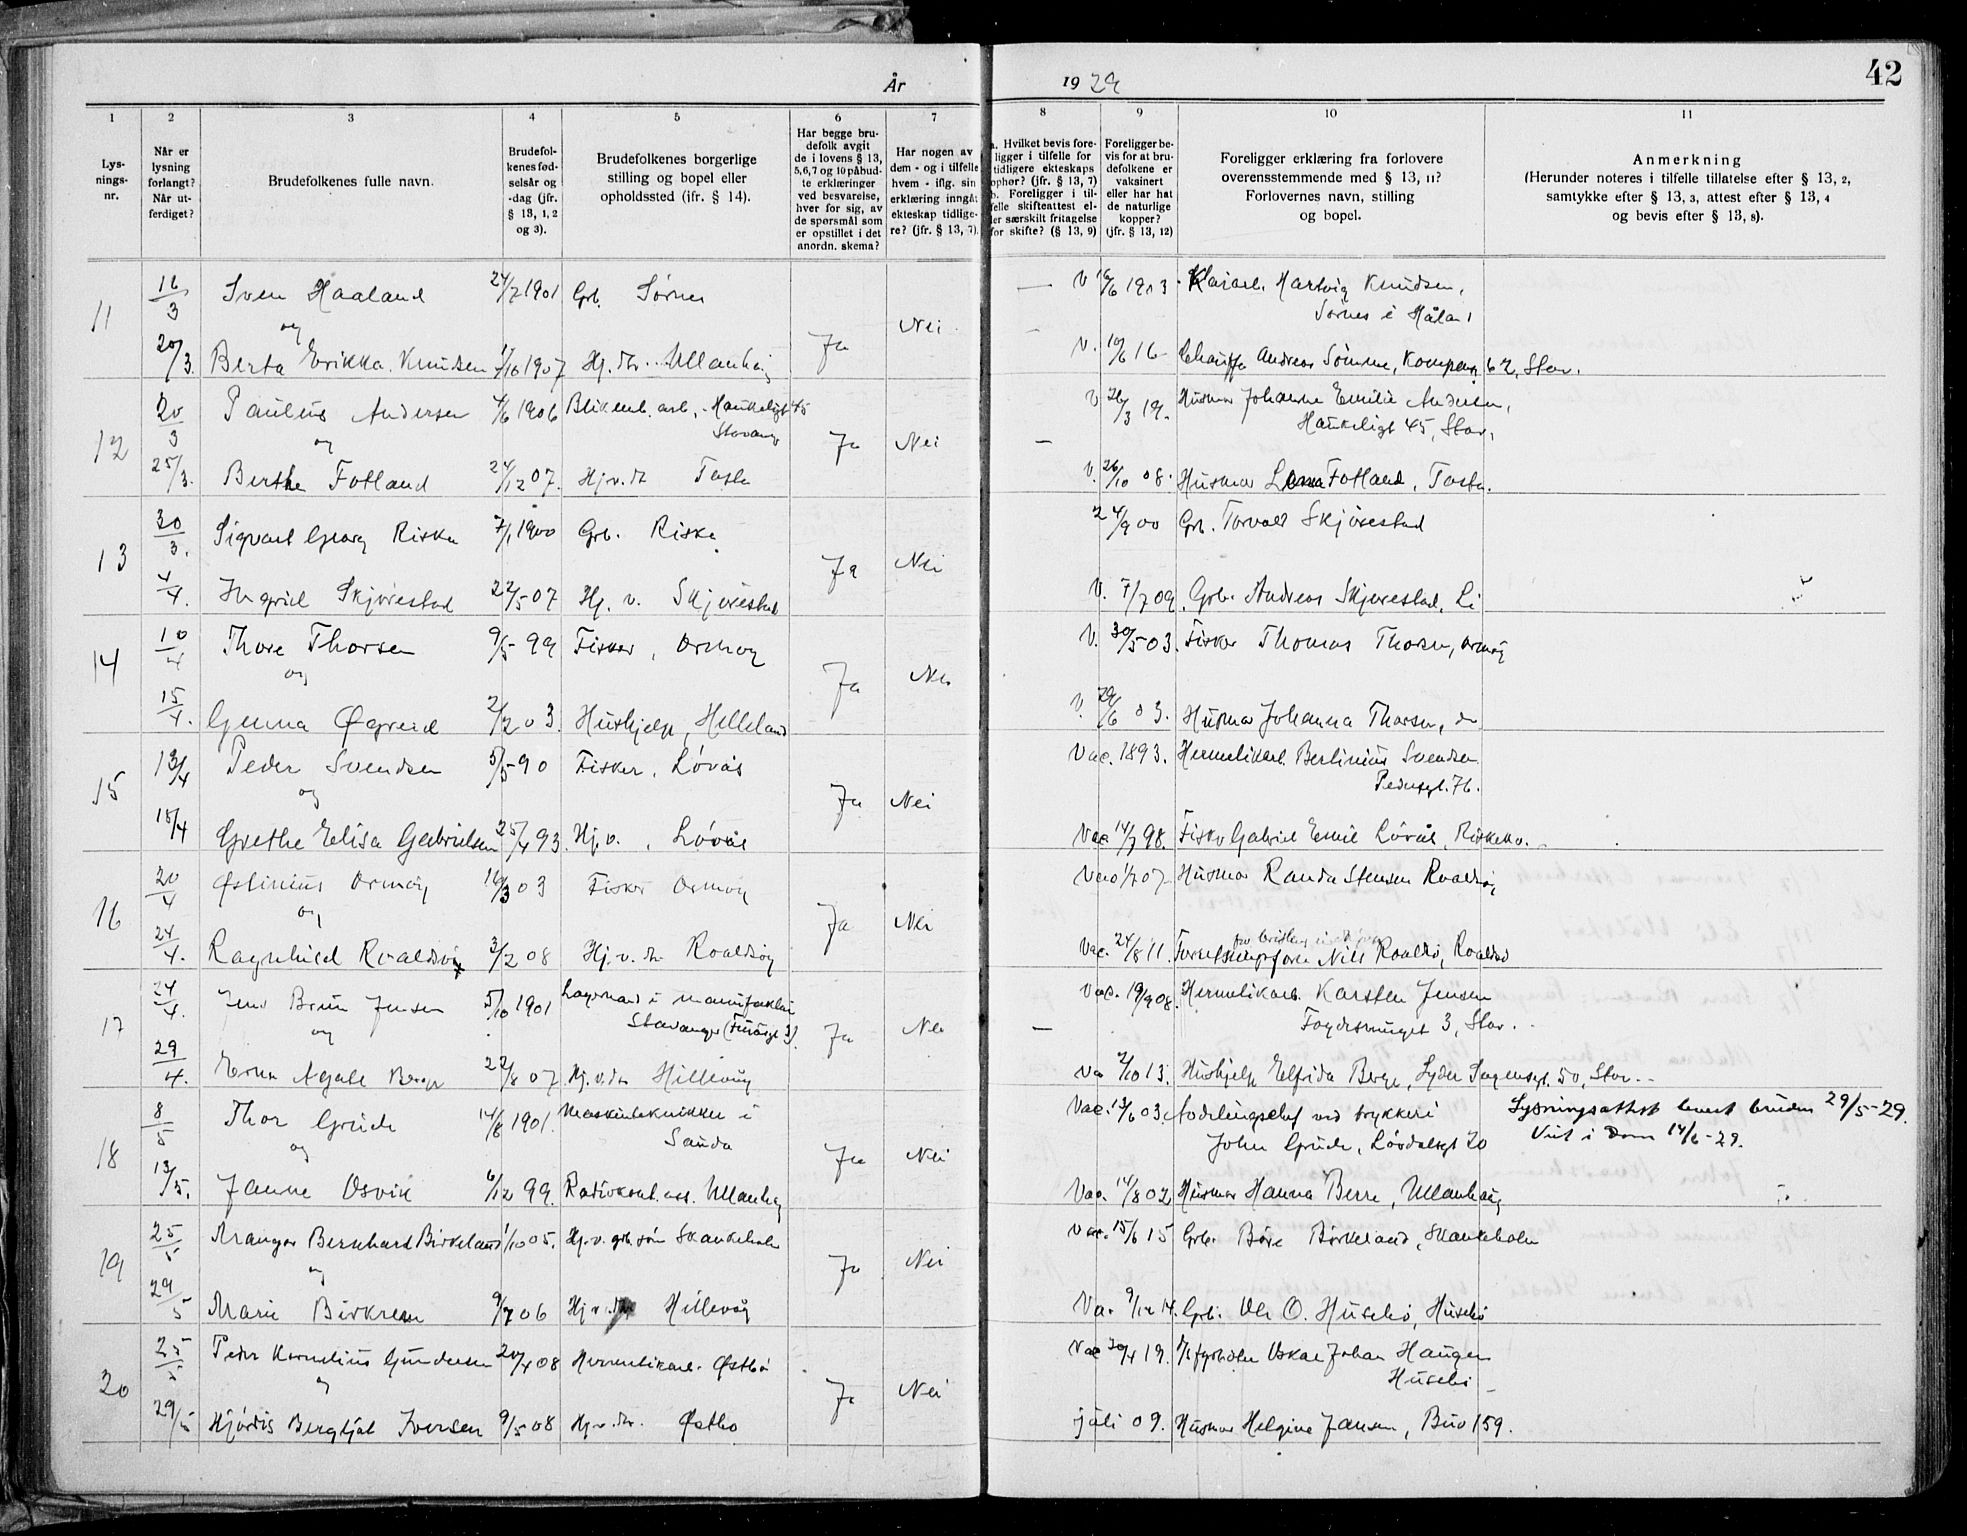 År 1929
42
1 2 3 4 5 6 7 8 9 10 11
Lys-
nings-
nr.
Når er
lysning
forlangt?
Når ut-
ferdiget?
Brudefolkenes fulle navn.
Brudefol-
kenes fød-
selsår og
-dag (jfr.
§ 13, 1, 2
og 3).
Brudefolkenes borgerlige
stilling og bopel eller
opholdssted (jfr. § 14).
Har begge bru-
defolk avgit
de i lovens § 13,
5,6,7 og 10 påbud-
te erklæringer
ved besvarelse,
hver for sig, av
de spørsmål som
er opstillet i det
anordn. skema?
Har nogen av
dem - og i tilfelle
hvem - iflg. sin
erklæring inngåt
ekteskap tidlige-
re? (jfr. § 13, 7).
a. Hvilket bevis fore-
ligger i tilfelle for
tidligere ekteskaps
ophør? (jfr. § 13, 7)
b. Foreligger i til-
felle skifteattest el-
ler særskilt fritagelse
for skifte? (§ 13, 9)
Foreligger be-
vis for at bru-
defolkene er
vaksinert
eller har hat
de naturlige
kopper?
(jfr. § 13, 12)
Foreligger erklæring fra forlovere
overensstemmende med § 13, 11?
Forlovernes navn, stilling
og bopel.
Anmerkning
(Herunder noteres i tilfelle tillatelse efter § 13, 2,
samtykke efter § 13, 3, attest efter § 13, 4
og bevis efter § 13, 8).
11 16/3 Sven Haaland 24/7 1901 Grb. Sørnes — V 16/6 1913 Hartvig Knudsen,
Sørnes i Håland
og Ja Nei
20/3. Berta Erikka Knudsen 1/10 1907 Hj. dtr. Ullanhaug — V. 10/6 16 Andreas Sømme, 62, Stav.
12 20/3 Paulus Andersen 4/6 1906 Blikemb. arb., Haukeligt 45 V 26/3 19. Husmor Johanne Emilie Andersen,
Stavang Haukeligt 45, Stav.
og Ja Nei —
25/3. Berthe Fotland 24/12 07. Hj. v. dt Tasta V. 26/10 08. Husmor Lena Fotland, Tasta.
13 30/3. Sigvart Georg Riska 7/1 1900 Grb. Riska 24/9 00 Grb. Torvald Skjørestad
Ja Nei
4/4. Ingrid Skjørestad 22/5 07 Hj. v. Skjørestad V. 7/7 09. Grb. Andreas Skjørestad, Li
14 10/4 Thore Thorsen 9/5 99 Fisker, Ormøy V. 30/5 03. Fisker Thomas Thorsen, Ormøy
og Ja Nei
15/4. Gunna Øgreid 2/2 03. Hushjelp, Helleland V. 29/6 03. Husmor Johanna Thorsen, do
15 13/4 Peder Svendsen 5/5 90 Fisker, Løvås Vac. 1893. Hermetikarb. Berlinius Svendsen
Pedersgt. 76.
og Ja Nei
18/4 Grethe Elisa Gabrielsen 25/4 93. Hj. v., Løvås Vac 14/7 98. Fisker Gabriel Emil Løvås,
16 20/4 Østinius Ormøy 16/3 03 Fisker Ormøy Vac 1/7 07 Husmor Randa Stensen Roaldsøy
og Ja Nei
24/4. Ragnhild Roaldsøy 3/2 08 Hj. v. dtr Roaldsøy Vac. 24/8 11. Nils Roaldsø, Roaldsø
17 24/4. Jens Brun Jensen 5/10 1901 Lagermand i manufaktur Vac. 19/9 08. Hermetikarb. Karsten Jensen
Stavanger 3, Stav.
og Ja Nei —
29/4. Erna Agate Berge 22/8 07 Hj. v. dtr Hillevåg Va 2/10 13. Hushjelp Elfrida Berge, Lyder Sagensgt. 50, Stav.
18 8/5 Thor Grude 14/8 1901. Maskintekniker i Vac. 13/6 03. Avdelingschef ved trykkeri Lysningsattest levert bruden 29/5-29.
Sauda John Grude, Løvdalsgt 20 Viet i Dom 14/6-29.
og Ja Nei
13/5. Janne Osvik 6/12 99. Ullanhaug Vac. 14/8 02 Husmor Hanna Berre, Ullanhaug
19 25/5 Mangor Bernhard Birkeland 1/10 05. Hj. v. grb. søn Skankeholen Vac. 15/6 15 Grb. Børe Birkeland, Skankeholen
og Ja Nei
29/5 Marie Birkrem 9/7 06 Hj. v. dtr Hillevåg Va. 9/12 14. Grb. Ole O. Husebø, Husebø
20 25/5 Peder Kornelius Gundersen 20/4 08 Hermetikarb. Østbø Vac 30/4 19. Oskar Johan Haugen
Husebø
og Ja Nei
29/5 Hjørdis Bergljot Iversen 9/5 08 Hj. v. dtr. Østbø juli 09. Husmor Helgine Jansen, Buø 159.